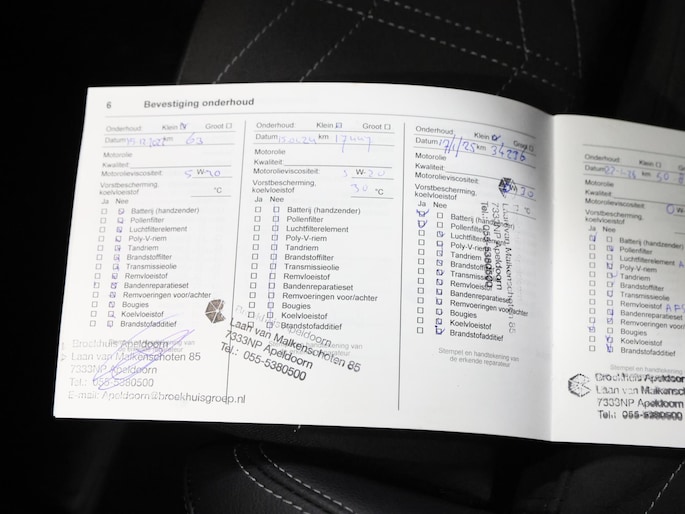 6 Bevestiging onderhoud
Onderhoud: Klein Groot
Datum km 63
Motorolie
Kwaliteit:
Motorolieviscositeit: 5 W-30
Vorstbescherming, °C
koelvloeistof
Ja Nee
Batterij (handzender)
Pollenfilter
Luchtfilterelement
Poly-V-riem
Tandriem
Brandstoffilter
Transmissieolie
Remvloeistof
Bandenreparatieset
Remvoeringen voor/achter
Bougies
Koelvloeistof
Brandstofadditief
Brochhuis Apeldoorn
Laan van Malkenschoten 85
7333NP Apeldoorn
Tel.: 055-5380500
E-mail: Apeldoorn@broekhuisgroep.nl
Onderhoud: Klein Groot
Datum km
Motorolie
Kwaliteit:
Motorolieviscositeit: W-30
Vorstbescherming, 30 °C
koelvloeistof
Ja Nee
Batterij (handzender)
Pollenfilter
Luchtfilterelement
Poly-V-riem
Tandriem
Brandstoffilter
Transmissieolie
Remvloeistof
Bandenreparatieset
Remvoeringen voor/achter
Bougies
Koelvloeistof
Brandstofadditief
Laan van Malkenschoten 85
7333NP Apeldoorn
Tel.: 055-5380500
Onderhoud: Klein Groot
Datum 17/1/25 km 34286
Motorolie
Kwaliteit:
Motorolieviscositeit: 30
Vorstbescherming, °C
koelvloeistof
Ja Nee
Batterij (handzender)
Pollenfilter
Luchtfilterelement
Poly-V-riem
Tandriem
Brandstoffilter
Transmissieolie
Remvloeistof
Bandenreparatieset
Remvoeringen voor/achter
Bougies
Koelvloeistof
Brandstofadditief
Laan van Malkenschoten 85
7333NP Apeldoorn
Tel.: 055-5380500
Stempel en handtekening van
de erkende reparateur
Onderhoud: Klein Groot
Datum km 50
Motorolie
Kwaliteit:
Motorolieviscositeit: 0 W
Vorstbescherming,
koelvloeistof
Ja Nee
Batterij (handzender)
Pollenfilter
Luchtfilterelement
Poly-V-riem
Tandriem
Brandstoffilter
Transmissieolie
Remvloeistof
Bandenreparatieset
Remvoeringen voor/
Bougies
Koelvloeistof
Brandstofadditief
Broekhuis Apeldoorn
Laan van Malkensch
7333NP Apeldoorn
Tel.: 055-5380500